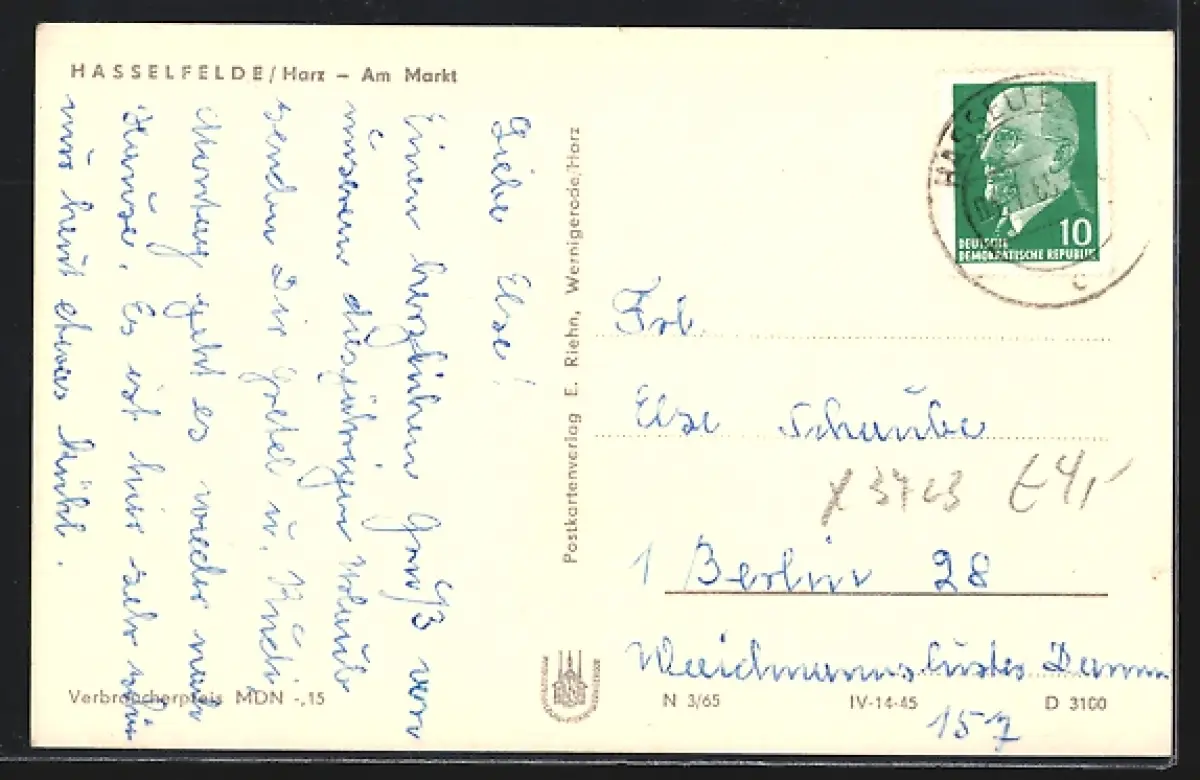 HASSELFELDE/Harz – Am Markt
Liebe Else!
Einen herzlichen Gruß von
unserem diesjährigen Urlaub
senden Dir Gretel u. Rudi.
Montag geht es wieder nach
Hause. Es ist hier sehr schön
nur heut etwas kühl.
Verbraucherpreis MDN -,15
Postkartenverlag E. Riehn, Wernigerode/Harz
HASSELFE
C
10
DEUTSCHE
DEMOKRATISCHE REPUBLIK
Frl.
Else Schaube
X 3723 E4,-
1 Berlin 28
Waidmannsluster Damm
157
N 3/65 IV-14-45 D 3100